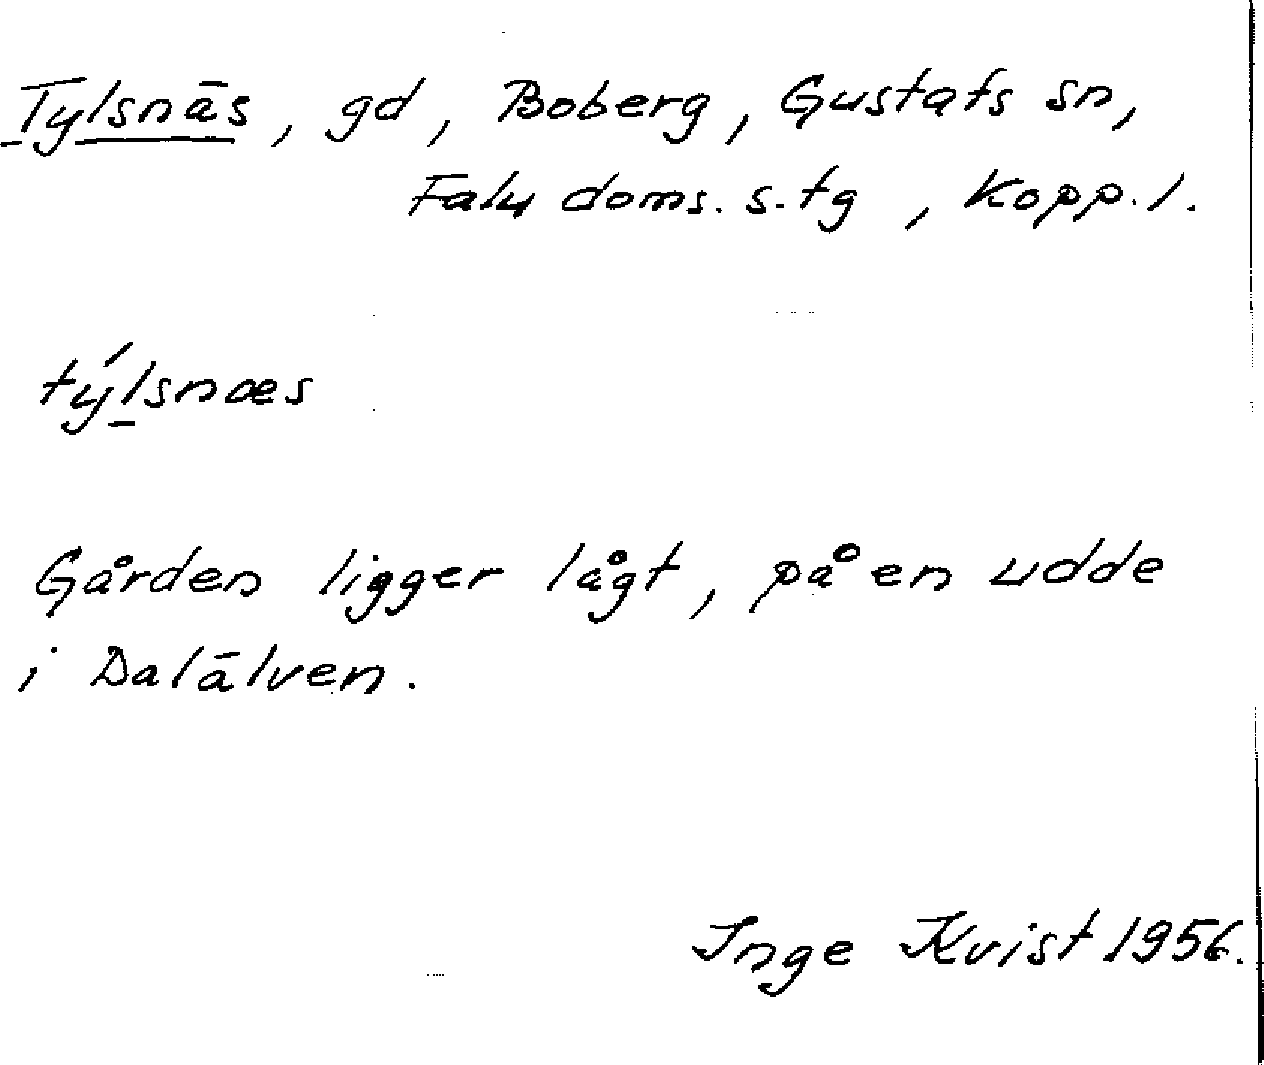 Tylsnäs, gd, Boberg, Gustafs sn,
Falu doms. s. tg, Kopp. l.
týl̠snæs
Gården ligger lågt, på en udde
i Dalälven.
Inge Kvist 1956.